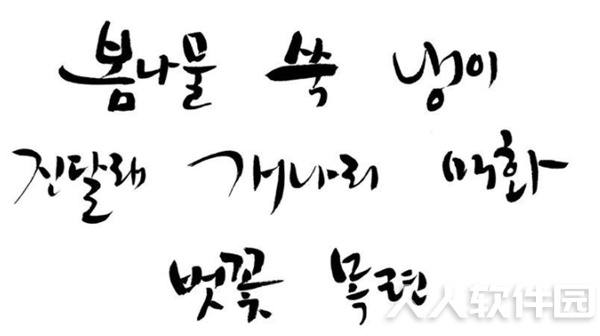 봄나물 쑥 냉이
진달래 개나리 매화
벚꽃 목련
人人软件园